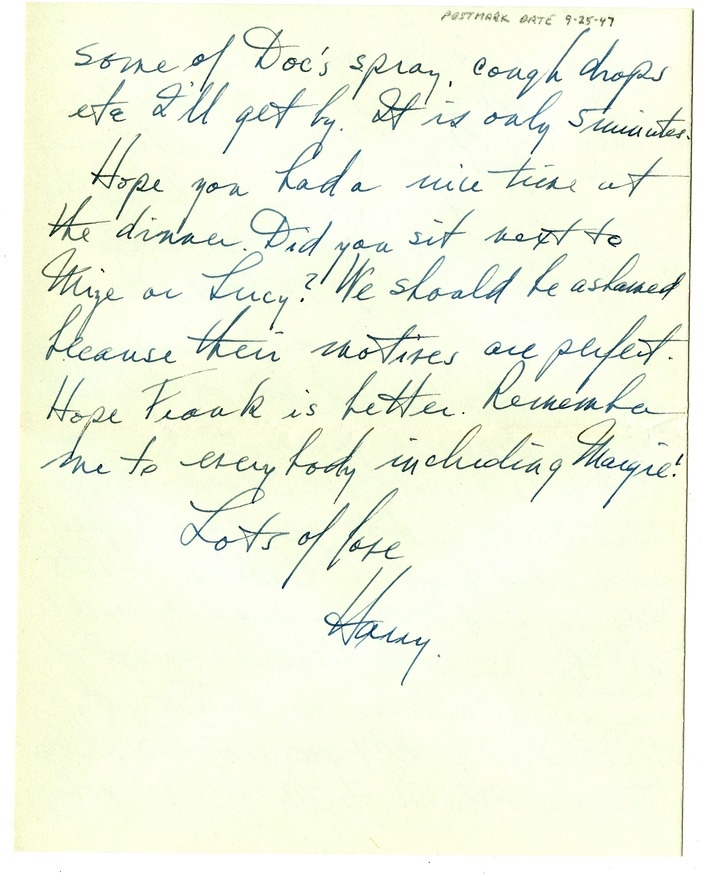 POSTMARK DATE 9-25-47
some of Doc's spray, cough drops
etc I'll get by. It is only 5 minutes.
Hope you had a nice time at
the dinner. Did you sit next to
Mize or Lucy? We should be ashamed
because their motives are perfect.
Hope Frank is better. Remember
me to everybody including Margie!
Lots of love
Harry.